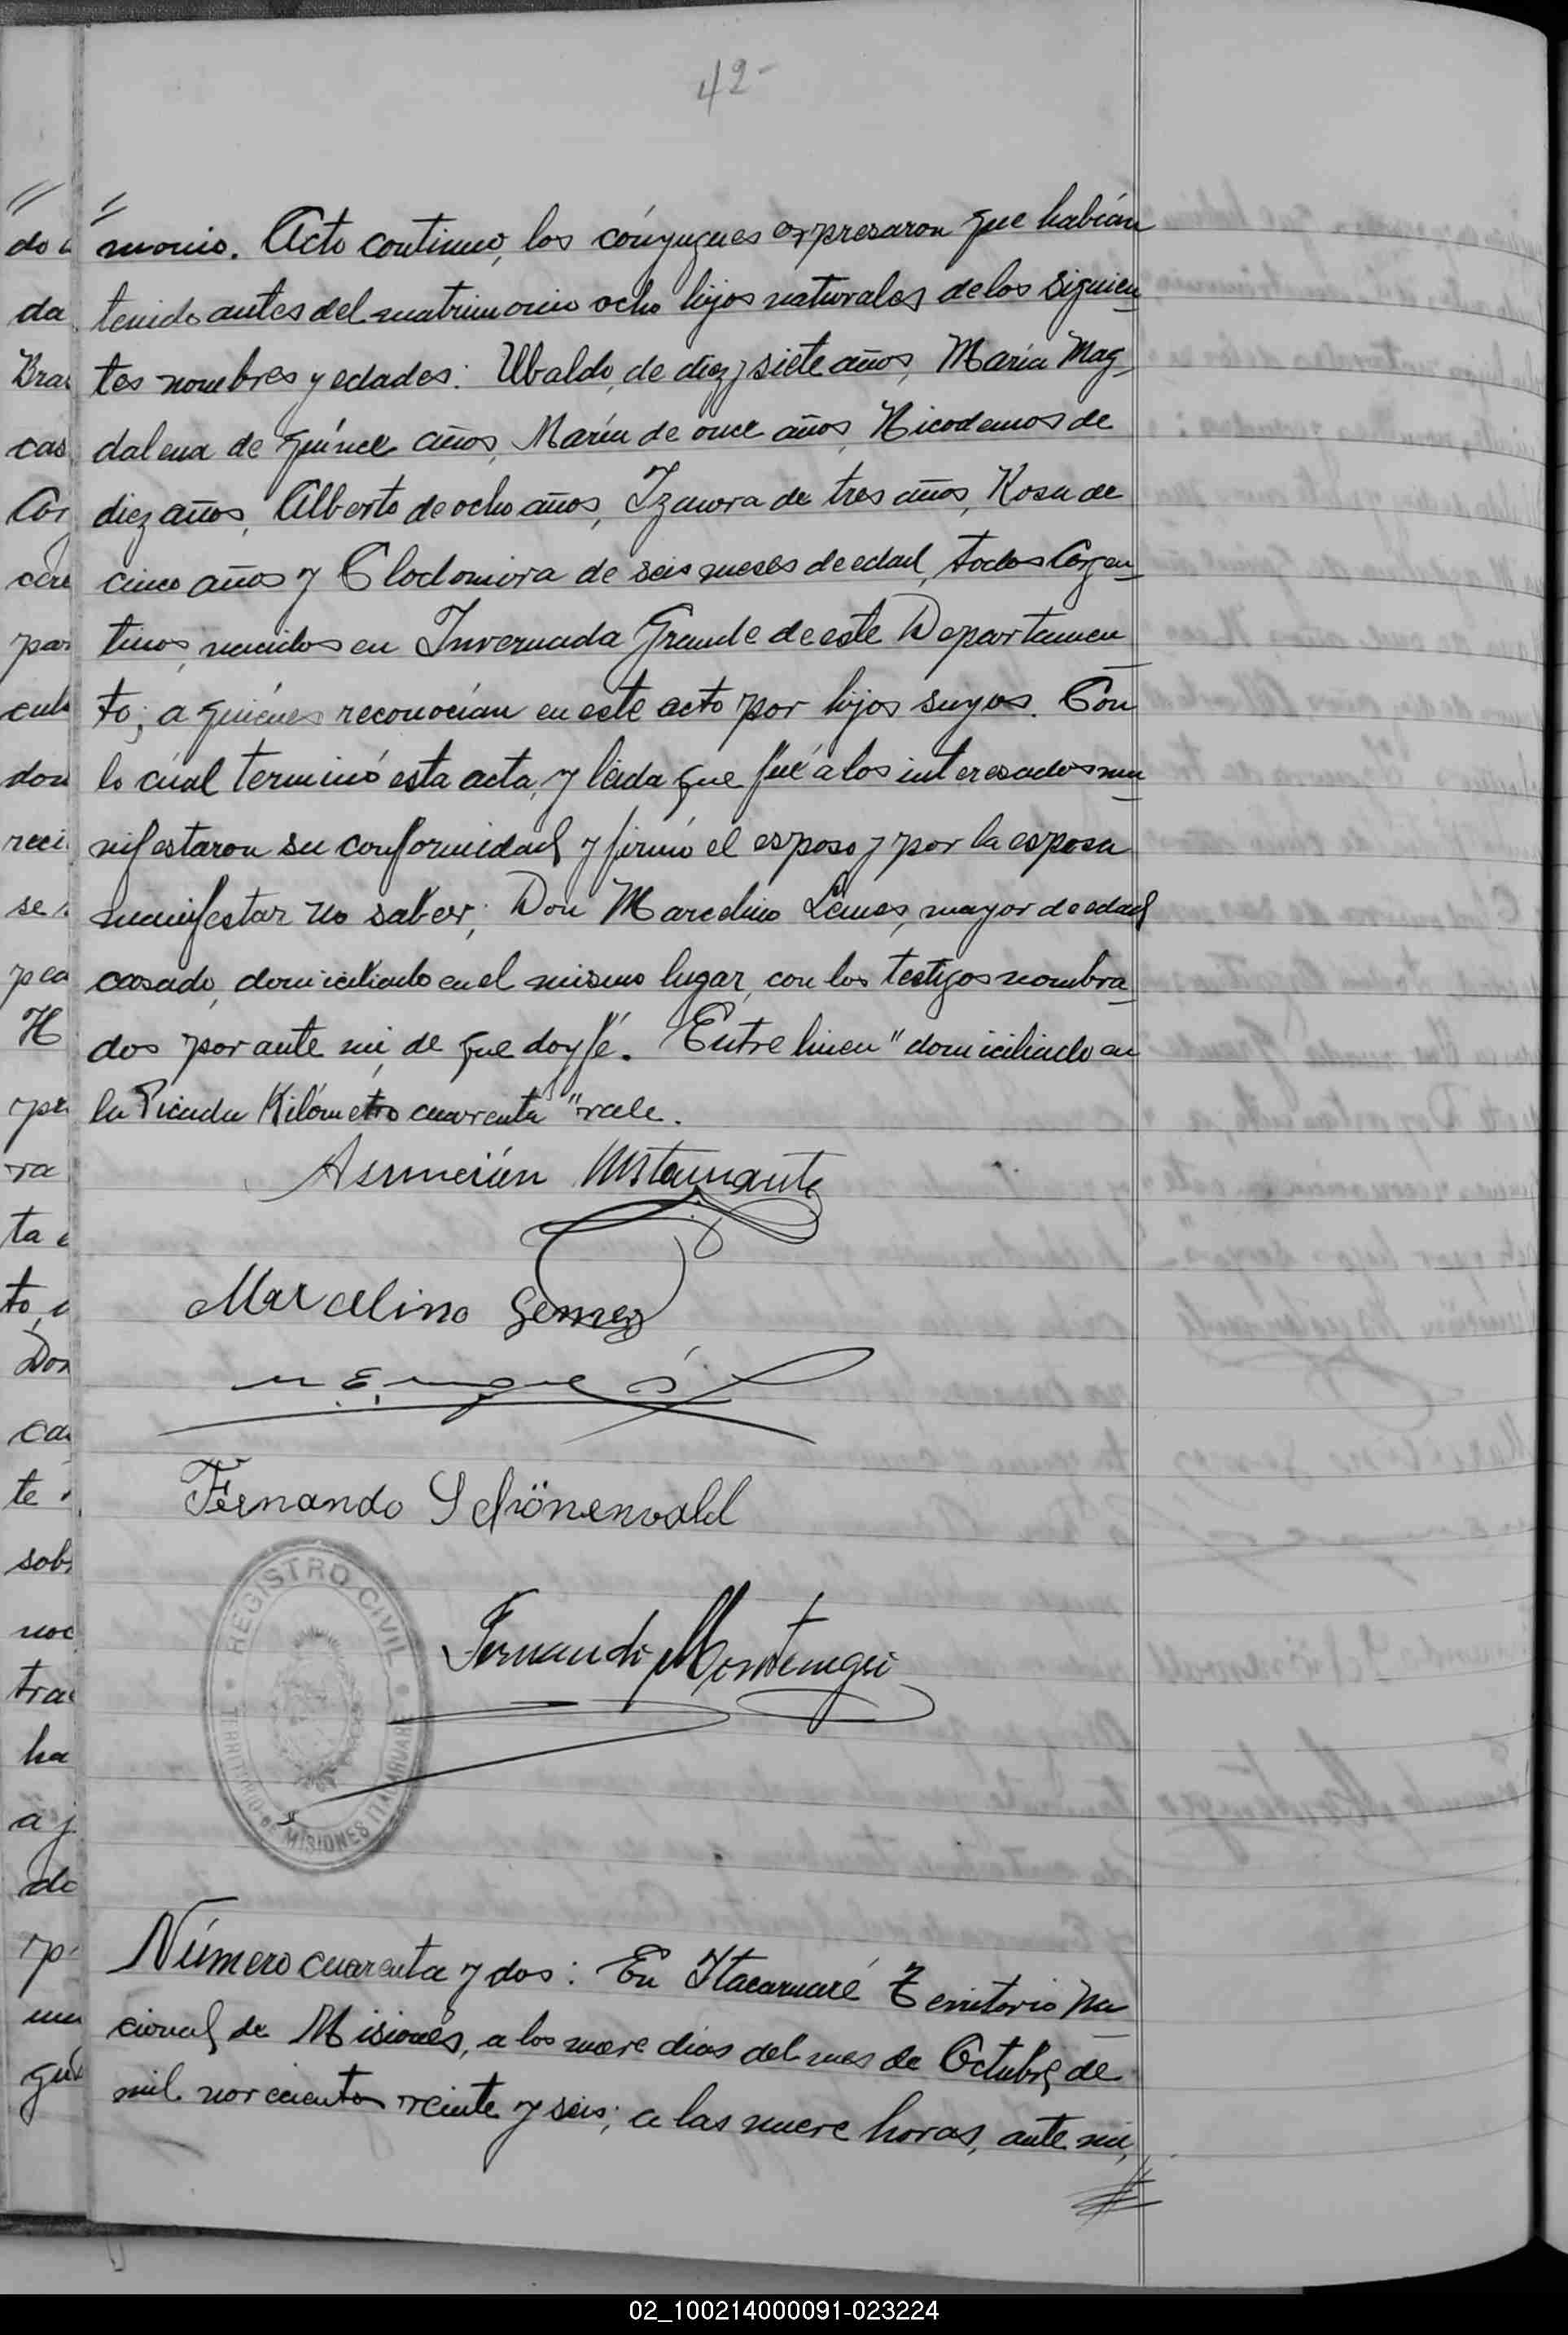 42-
monio. Acto continuo, los cónyugues expresaron que habían
tenido antes del matrimonio ocho hijos naturales de los siguien
tes nombres y edades: Ubaldo, de diez y siete años, María Mag
dalena de quince años, María de once años, Nicodemos de
diez años, Alberto de ocho años, Izaura de tres años, Rosa de
cinco años y Clodomira de seis meses de edad, todos Argen
tinos, nacidos en Invernada Grande de este Departamen
to; a quiénes reconocían en este acto por hijos suyos. Con
lo cúal terminó esta acta, y leida que fué a los interesados ma
nifestaron su conformidad y firmó el esposo y por la esposa
manifestar no saber, Don Marcelino Lemes, mayor de edad
casado, domiciliado en el mismo lugar, con los testigos nombra
dos por ante mí, de que doy fé. Entre linea "domiciliado en
la Picada Kilómetro cuarenta" vale.
Asunción
Marcelino
Fernando Schönenwald
Fernando Montenegro
REGISTRO CIVIL
TERRITORIO DE MISIONES ITACARUARE
Número cuarenta y dos: En Itacaruaré Territorio Na
cional de Misiones, a los nueve dias del mes de Octubre de
mil novecientos veinte y seis; a las nueve horas, ante mí,
02_100214000091-023224